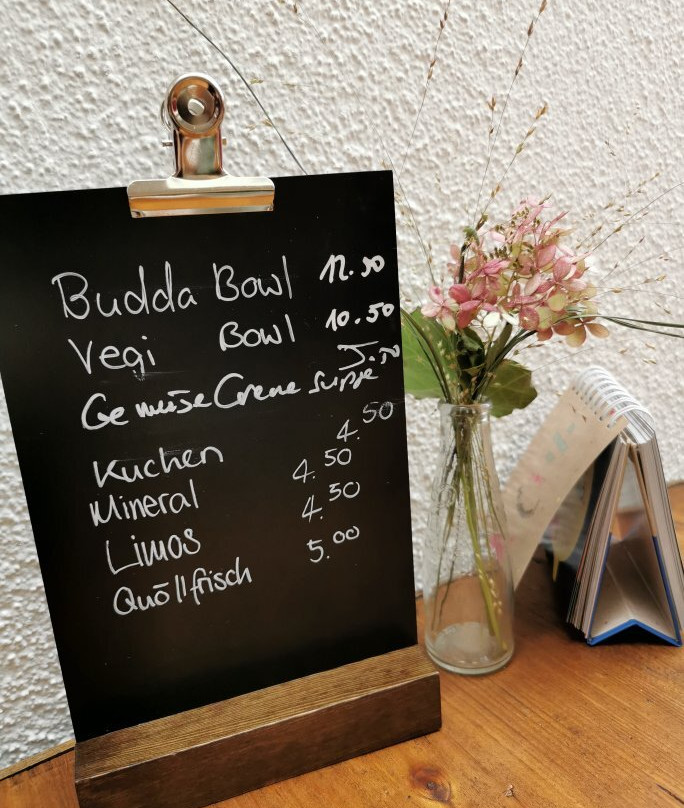 Budda Bowl 12.50
Vegi Bowl 10.50
GemüseCreme suppe 5.50
Kuchen 4.50
Mineral 4.50
Limos 4.50
Quöllfrisch 5.00